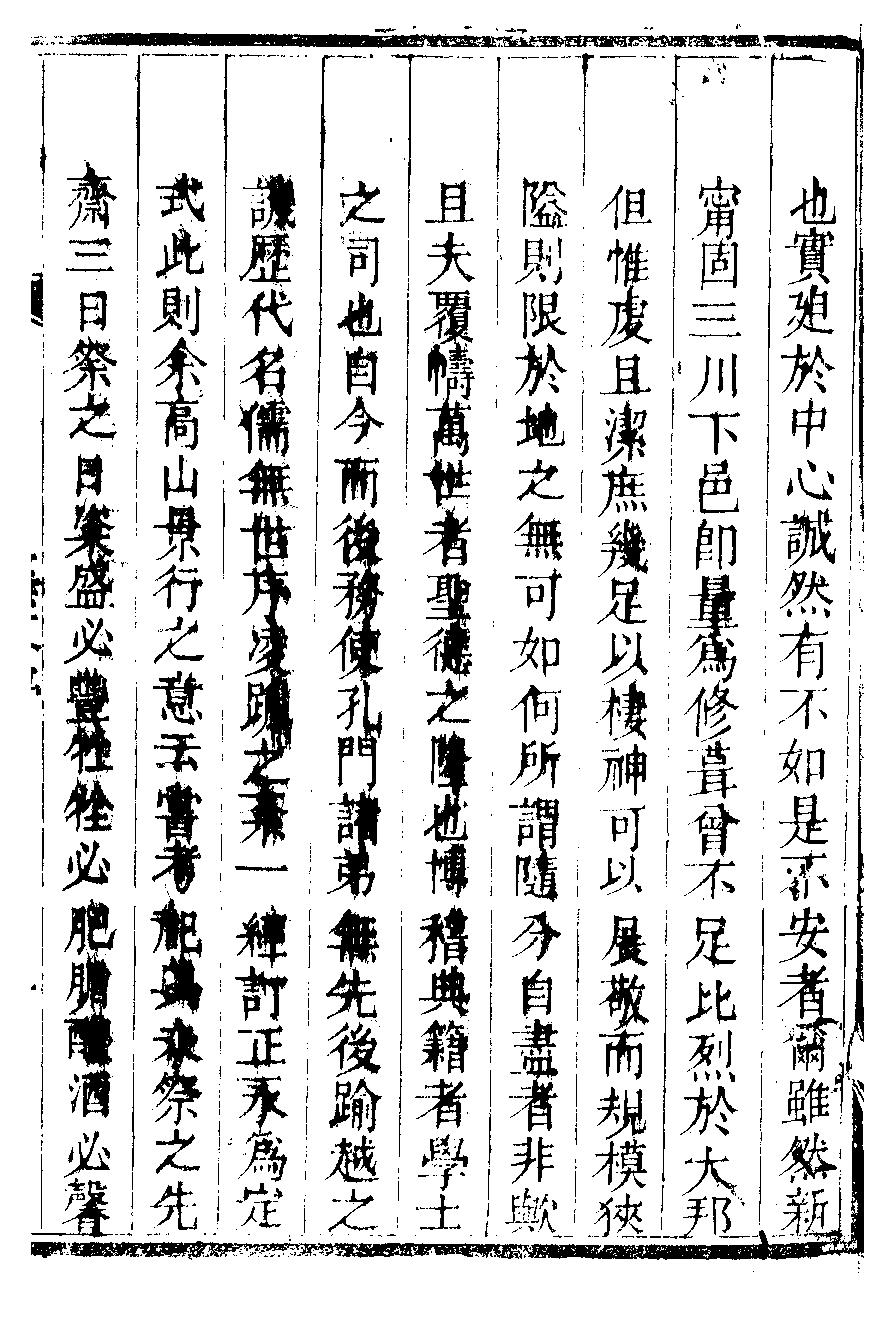 也實廹於中心誠然有不如是不安者爾雖然新
甯固三川下邑卽量為修葺曾不足比烈於大邦
但惟虔且潔庶幾足以棲神可以展敬而規模狹
隘則限於地之無可如何所謂隨分自盡者非歟
且夫覆幬萬世者聖德之隆也博稽典籍者學士
之司也自今而後務使孔門諸弟無先後踰越之
譏歷代名儒無世序凌躐之紊一一釐訂正永為定
式此則余高山景行之意云嘗考祀典未祭之先
齋三日祭之日粢盛必豐牲牷必肥腯醴酒必馨